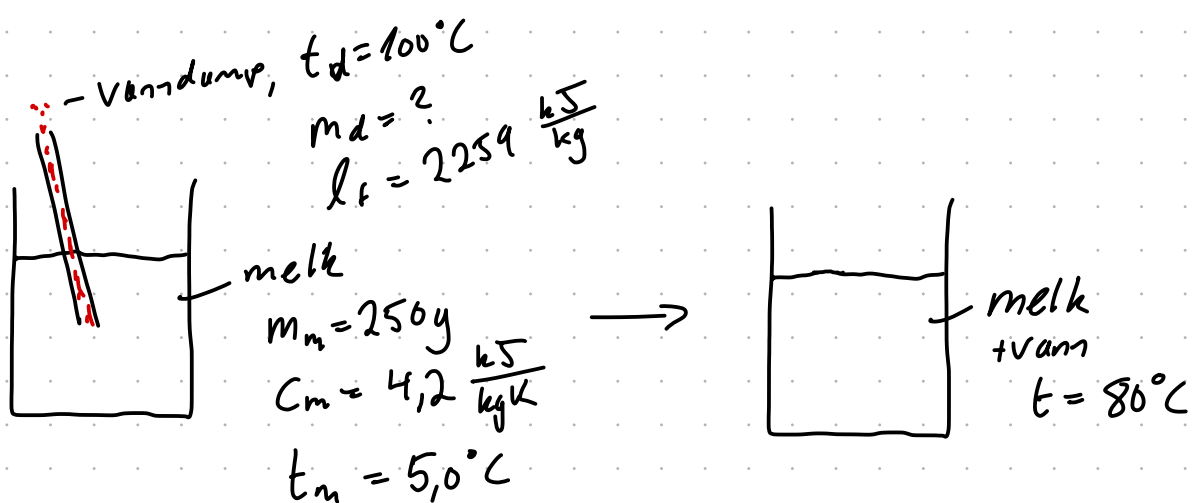 - Vanndamp, t_d = 100°C
m_d = ?
l_f = 2259 kJ/kg
melk
m_m = 250g
c_m = 4,2 kJ/kgK
t_m = 5,0°C
melk
+vann
t = 80°C